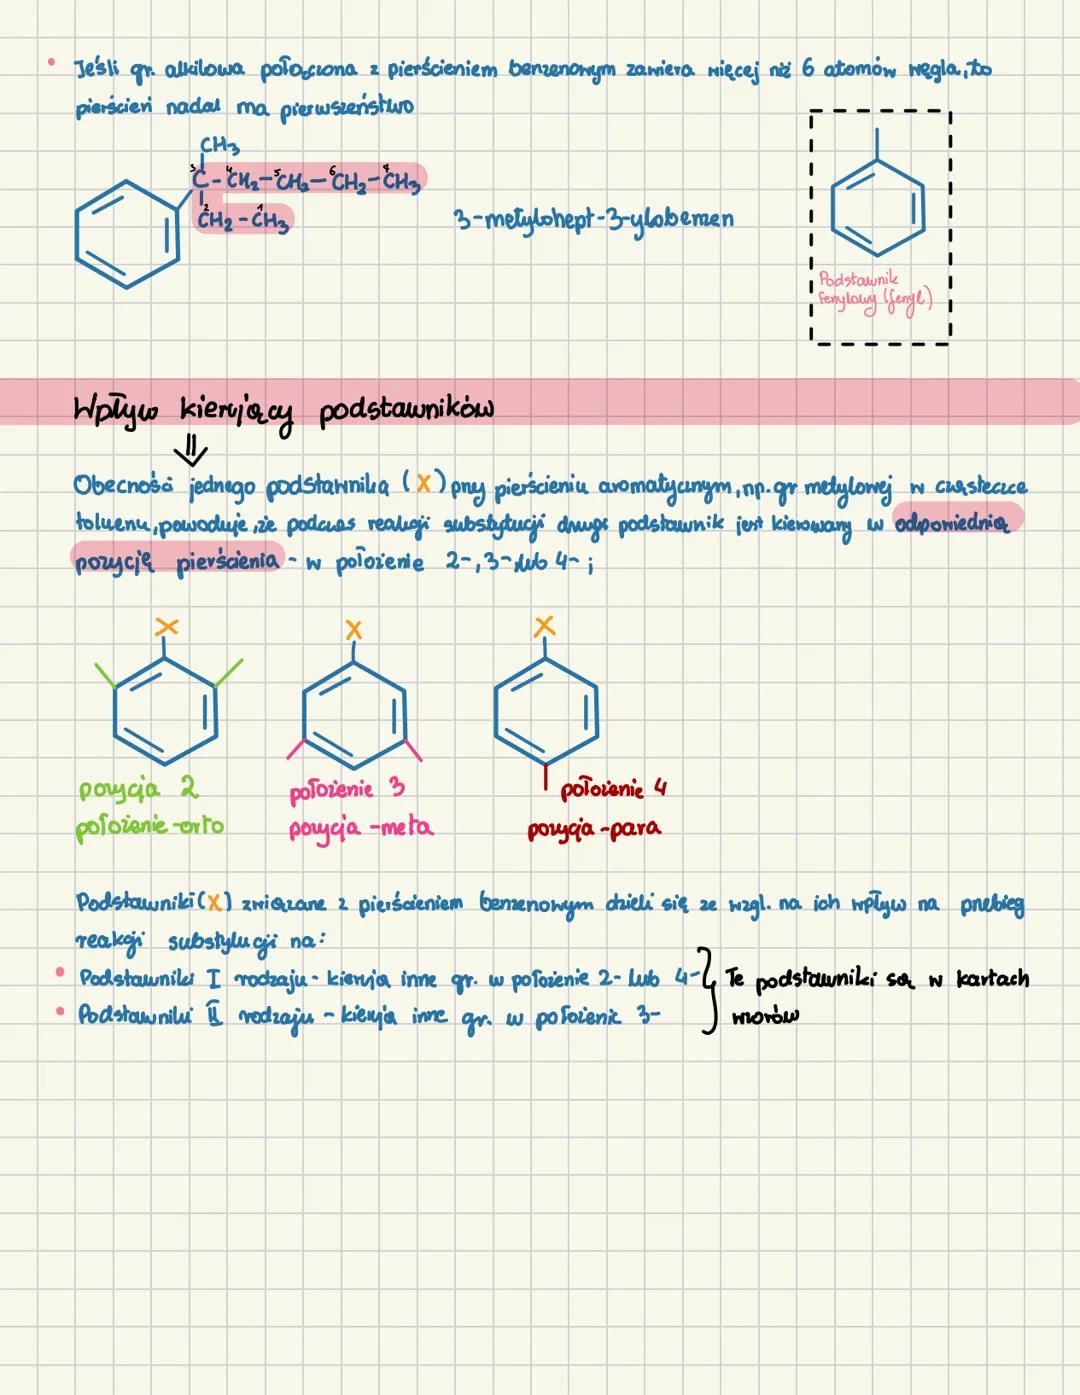 • Jeśli gr. alkilowa połączona z pierścieniem benzenowym zawiera więcej niż 6 atomów węgla, to
pierścień nadal ma pierwszeństwo
CH3
3C-4CH2-5CH2-6CH2-7CH3
2CH2-1CH3
3-metylohept-3-ylobenzen
Podstawnik
fenylowy (fenyl)
Wpływ kierujący podstawników
⇓
Obecność jednego podstawnika (X) przy pierścieniu aromatycznym, np. gr metylowej w cząsteczce
toluenu, powoduje, że podczas reakcji substytucji drugi podstawnik jest kierowany w odpowiednią
pozycję pierścienia - w położenie 2-, 3- lub 4- ;
X X X
pozycja 2
położenie -orto
położenie 3
pozycja -meta
położenie 4
pozycja -para
Podstawniki (X) związane z pierścieniem benzenowym dzieli się ze wzgl. na ich wpływ na przebieg
reakcji substytucji na:
• Podstawniki I rodzaju - kierują inne gr. w położenie 2- lub 4-
• Podstawniki II rodzaju - kierują inne gr. w położenie 3-
} Te podstawniki są w kartach
wzorów